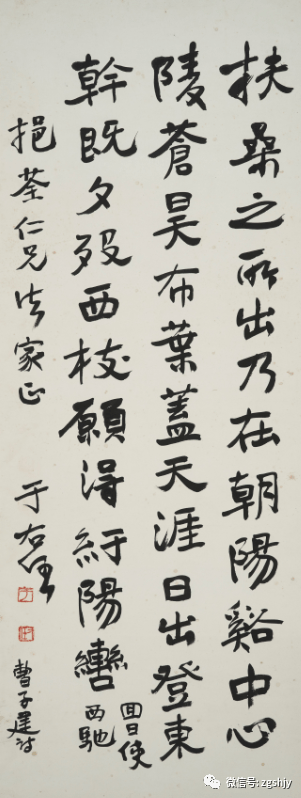 扶桑之所出乃在朝陽谿中心
陵蒼昊布葉蓋天涯日出登東
幹既夕歿西枝願得紆陽轡
囬日使
西馳
挹荃仁兄法家正 于右任
曹子建詩
微信号: zgshjy